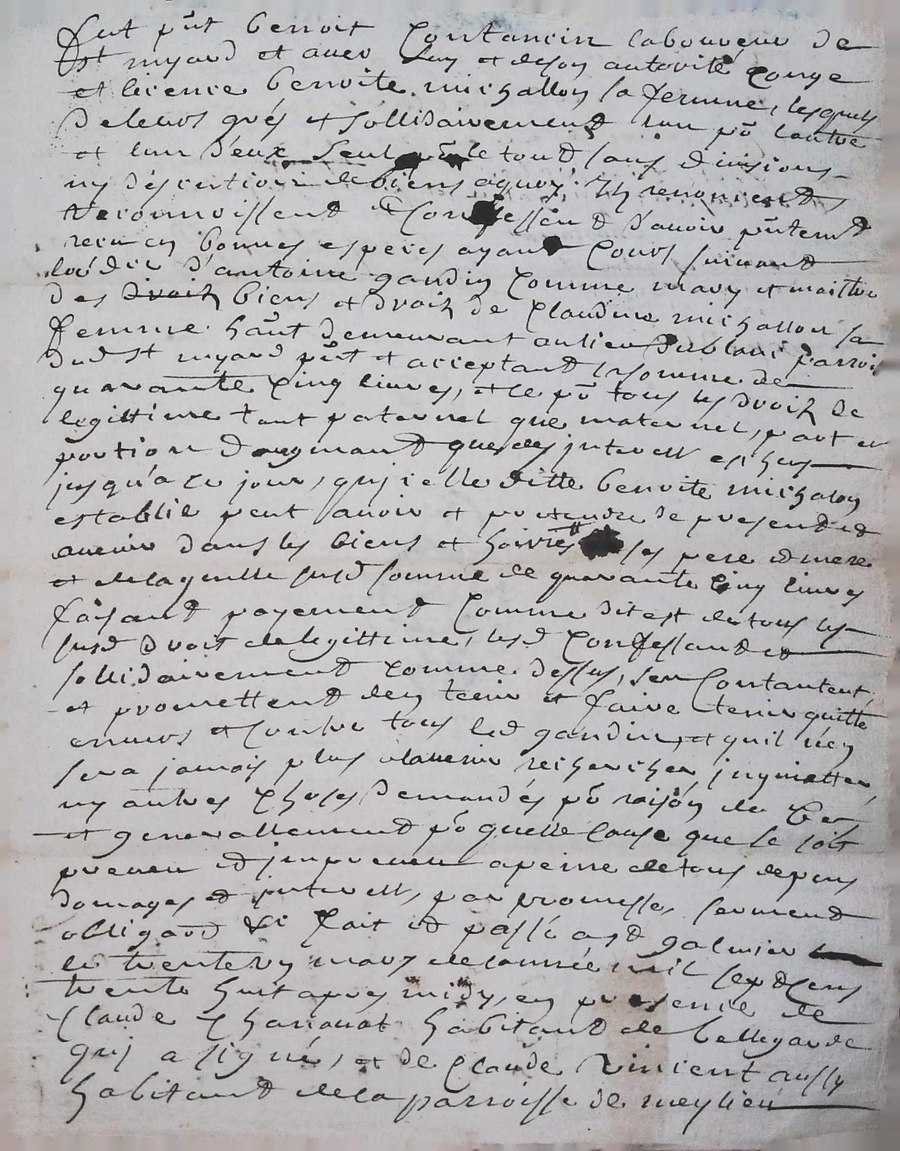 fut pnt benoit Contancin laboureur de
St myard et avec luy et deson autorité Conge
et licence benoite michallon sa femme, lesquels
de leurs grés et sollidairement lun pr lautre
et lun d'eux seul pr le tout sans divisions
ny descution de biens aquoy ils renoncent
reconnoissent et Confessent d'avoir pntemt
receu en bonnes especes ayant Cours suivant
lédit d'antoine gaudin Comme mary et maittre
des droits biens et droits de Claudine michallon sa
femme haut demeurant aulieu parroi
dud St myard pnt et acceptant la somme de
quarante Cinq livres, et ce pr tous les droits de
legittime tant paternel que maternel, part et
portion daugmant que des interests escheus
jusqu'a ce jour, qui icelle ditte benoite michalon
establie peut avoir et pretendre de present et
avenir dans les biens et hoiries ses pere et mere
et de laquelle susd somme de quarante Cinq livres
faisant payement Comme dit est de tous les
susd droit de legittime, lesd Confessant et
sollidairement Comme dessus, sen Contantent
et promettent den tenir et faire tenir quitte
envers et Contre tous led gaudin, et quil n'en
sera jamais plus alavenir rechercher, inquietter
ny autres Choses demandés pr raison de Ce
et generallement pr quelle Cause que ce soit
preveu et impreveu apeine de tous depens
domages et interests, par promesse, serment
obligaon &c fait et passé a St galmier
le trente un mars de lannée mil sept Cens
trente huit apres midy, en presence de
Claude Charouat habitant de bellegarde
qui a signé, et de Claude Vincent aussy
habitant de la parroisse de meylieu